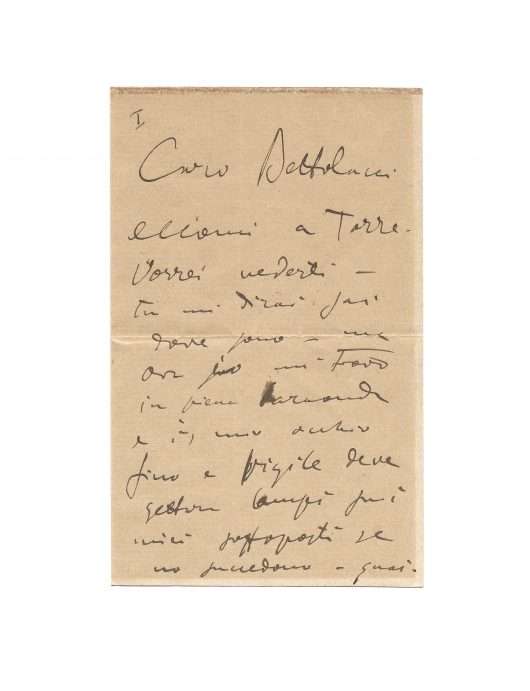 I
Caro Bettolacci
eccomi a Torre.
Vorrei vederti -
tu mi dirai sai
dove sono - ma
ora mi trovo
in piena
e il mio occhio
fino e vigile deve
gettar lampi sui
miei sottoposti se
no succedono - guai.